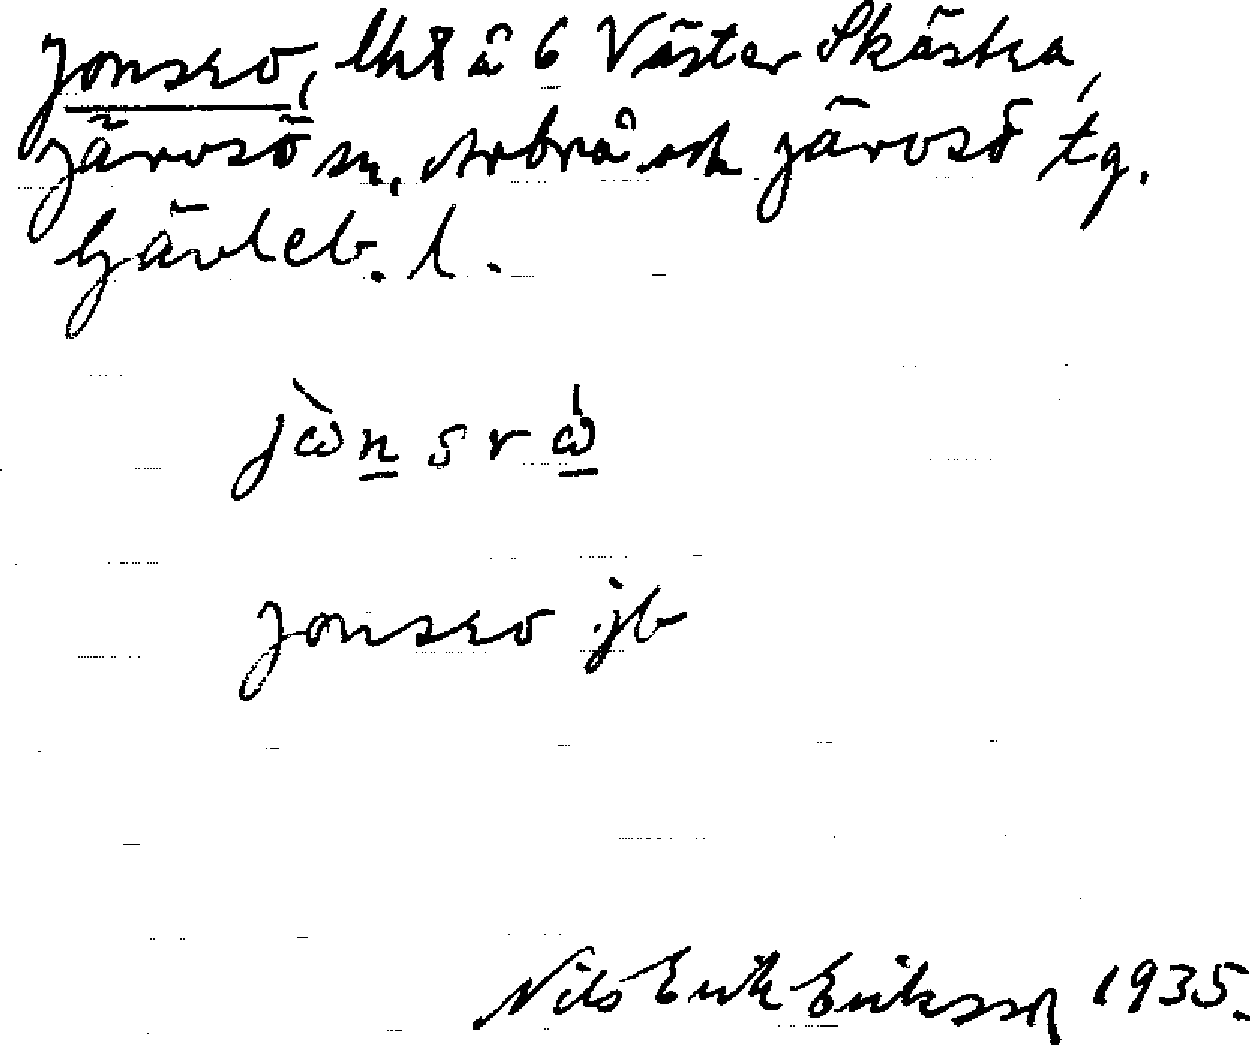 Jonsro, lht å 6 Väster Skästra,
Järvsö sn, Arbrå och Järvsö tg.
Gävleb. l.
jὼn̲srώ̲
Jonsro jb
Nils Erik Eriksson 1935.